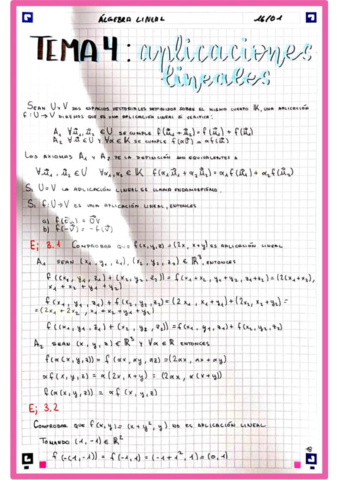 ÁLGEBRA LINEAL 16/01
TEMA 4: aplicaciones
lineales
SEAN U y V DOS ESPACIOS VECTORIALES DEFINIDOS SOBRE EL MISMO CUERPO K, UNA APLICACIÓN
f: U → V DIREMOS QUE ES UNA APLICACIÓN LINEAL SI VERIFICA:
A₁ ∀ū₁, ū₂ ∈ U SE CUMPLE f(ū₁ + ū₂) = f(ū₁) + f(ū₂)
A₂ ∀ū ∈ U y ∀α ∈ K SE CUMPLE f(αū) = αf(ū)
LOS AXIOMAS A₁ y A₂ DE LA DEFINICIÓN SON EQUIVALENTES A
∀ū₁, ū₂ ∈ U ∀α₁, α₂ ∈ K f(α₁ū₁ + α₂ū₂) = α₁f(ū₁) + α₂f(ū₂)
SI U = V LA APLICACIÓN LINEAL SE LLAMA ENDOMORFISMO.
SI f: U → V ES UNA APLICACIÓN LINEAL, ENTONCES
a) f(0̄ᵤ) = 0̄ᵥ
b) f(-ū) = -f(ū)
Ej 3.1 COMPROBAR QUE f(x,y,z) = (2x, x+y) ES APLICACIÓN LINEAL
A₁ SEAN (x₁, y₁, z₁), (x₂, y₂, z₂) ∈ R³, ENTONCES
f((x₁, y₁, z₁) + (x₂, y₂, z₂)) = f(x₁ + x₂, y₁ + y₂, z₁ + z₂) = (2(x₁+x₂),
x₁ + x₂ + y₁ + y₂)
f(x₁, y₁, z₁) + f(x₂, y₂, z₂) = (2x₁, x₁ + y₁) + (2x₂, x₂ + y₂) =
= (2x₁ + 2x₂, x₁ + x₂ + y₁ + y₂)
f((x₁, y₁, z₁) + (x₂, y₂, z₂)) = f(x₁, y₁, z₁) + f(x₂, y₂, z₂)
A₂ SEAN (x, y, z) ∈ R³ y ∀α ∈ K ENTONCES
f(α(x,y,z)) = f(αx, αy, αz) = (2αx, αx + αy)
αf(x,y,z) = α(2x, x+y) = (2αx, α(x+y))
f(α(x,y,z)) = αf(x,y,z)
Ej 3.2
COMPROBAR QUE f(x,y) = (x + y², y) NO ES APLICACIÓN LINEAL
TOMANDO (1, -1) ∈ R²
f(-(1,-1)) = f(-1, 1) = (-1 + 1², 1) = (0, 1)